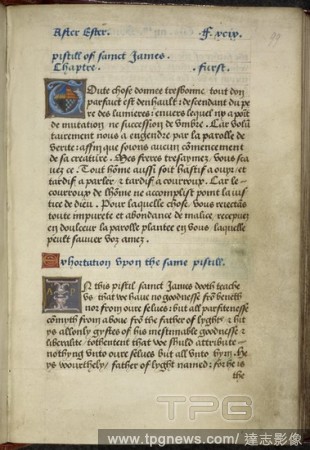 After Ester. ff. xcix.
pistill of sanct James.
Chaptre. furst.
Toute chose donnee tresbonne, tout don
parfaict est denhault: descendant du pe
re des lumieres: envers lequel ny a poit
de mutation, ne succession de umbre. Car volū
tairement nous a engendre par la parolle de
verite: affin que soions aucun cōmencement
de sa creature. Mes freres tresaymez, vous sca
vez ce. Tout hōme aussi soit hastif a ouyr: et
tardif a parler, & tardif a courroux. Car le
courroux de lhōme ne accomplist point la ius
tice de dieu. Pour laquelle chose, vous reiectās
toute impurete et abondance de malice, recepvez
en doulceur la parolle plantee en vous, laquelle
peult sauver voz amez.
Exhortation upon the same pistill.
In this pistil sanct James dooth teache
us that we have no goodnesse frō beneth
nor from oure selves: but all parfitenesse
cōmyth from above frō the father of lyght, & hit
ys allonly gyftes of his inestimable goodnesse &
liberalite, tothentent that we shuld attribute
nothyng unto oure selves but all unto hym. He
ys wourthely, father of lyght named: for he is
the
TPG
www.tpgnews.com/達志影像